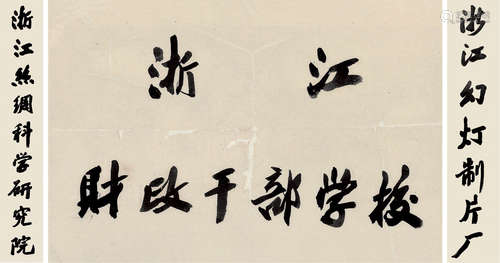 浙江丝绸科学研究院
浙江
财政干部学校
浙江幻灯制片厂